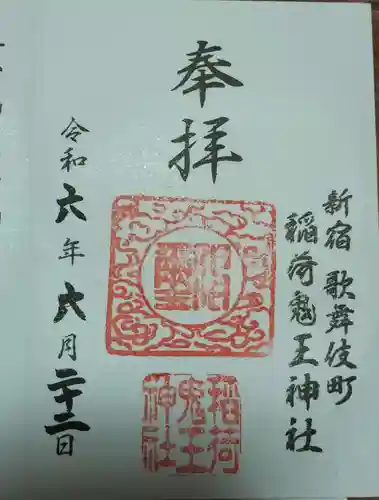 新宿歌舞伎町
稲荷鬼王神社
奉拝
稲荷
鬼王
神社
令和六年六月二十二日